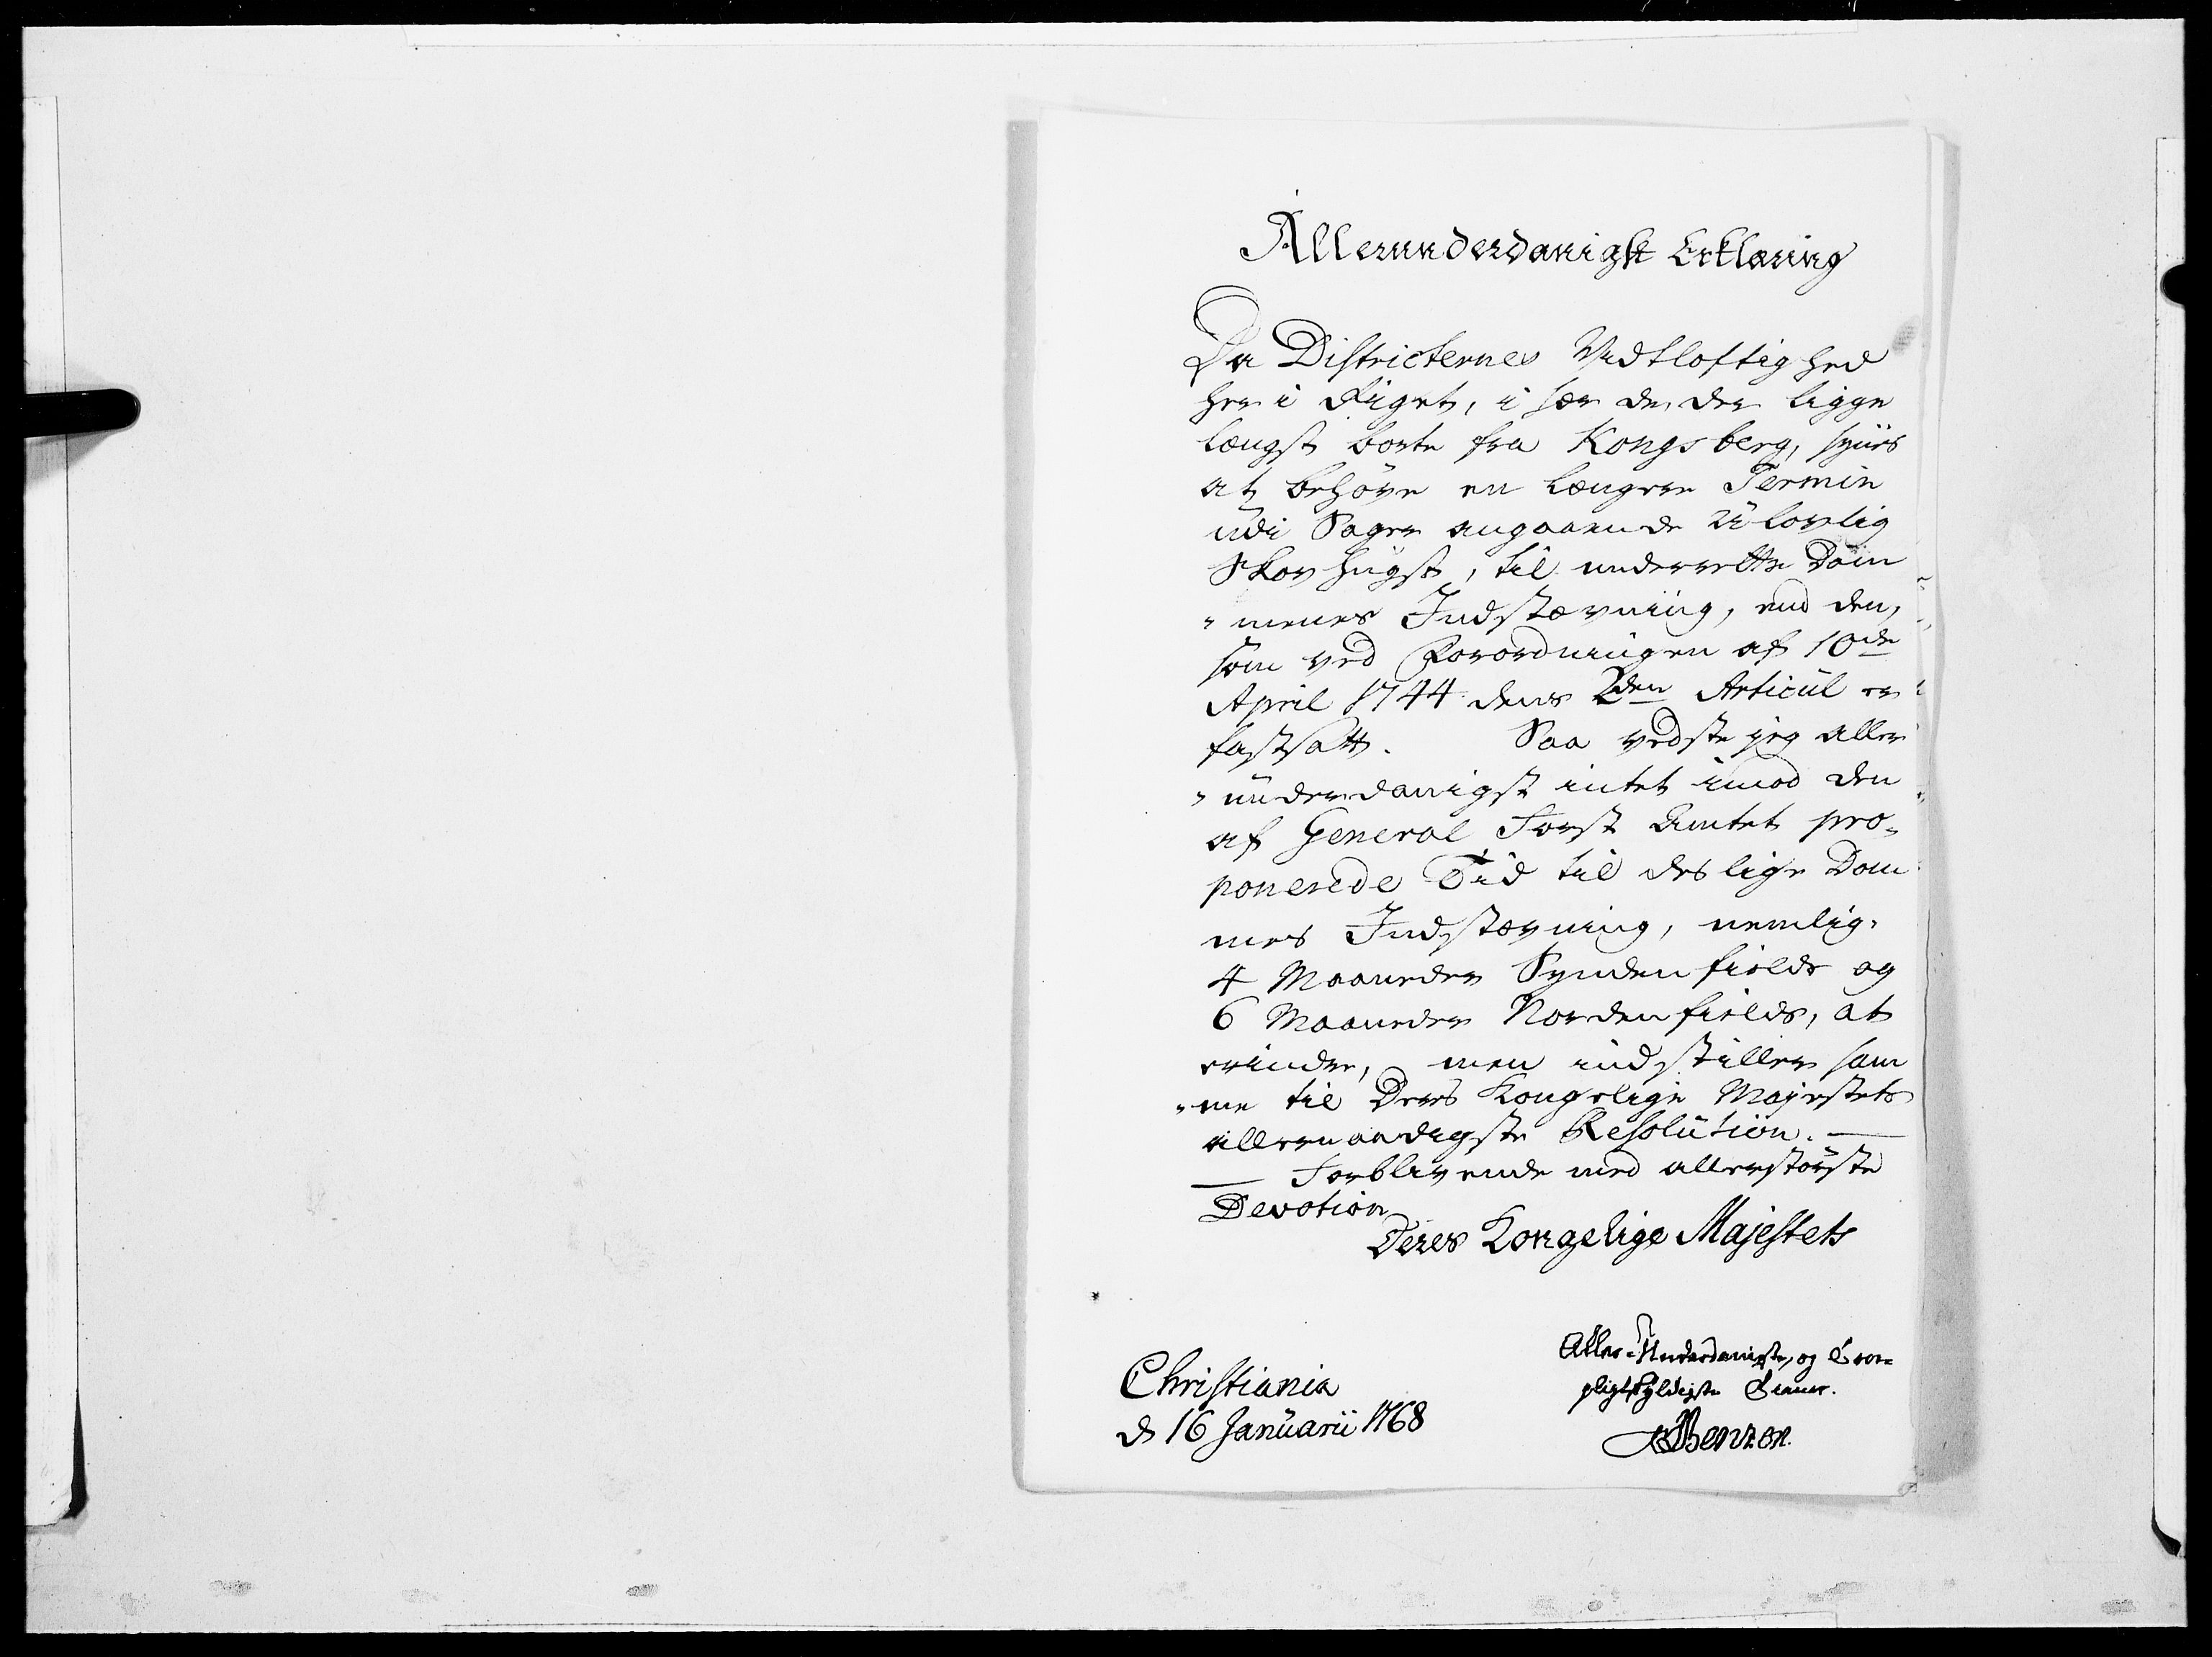 Allerunderdanigst Erklæring
Da Districternes Vidtløftighed
her i Riget, i sær de, der ligge
længst borte fra Kongsberg, synes
at behøve en længere Termin
udi Sager angaaende Ulovlig
Skovhugst, til underrette Dom
„menes Indstævning, end den,
som ved Forordningen af 10de
April 1744 dens 2den Articul er
fastsatt. Saa vedste jeg aller
„underdanigst intet imod den
af General Forst Amtet pro-
ponerede Tid til deslige Dom
mes Indstævning, nemlig.
4 Maaneder Syndenfields og
6 Maaneder Nordenfields, at
erindre, men indstiller sam
„me til Deres Kongelige Majestets
allernaadigste Resolution. —
— Forblivende med allerstørste
Devotion
Deres Kongelige Majestets
Christiania
d 16 Januarii 1768
Aller-Underdanigste, og Troe-
pligtskyldigste Tiener.
Benzon.